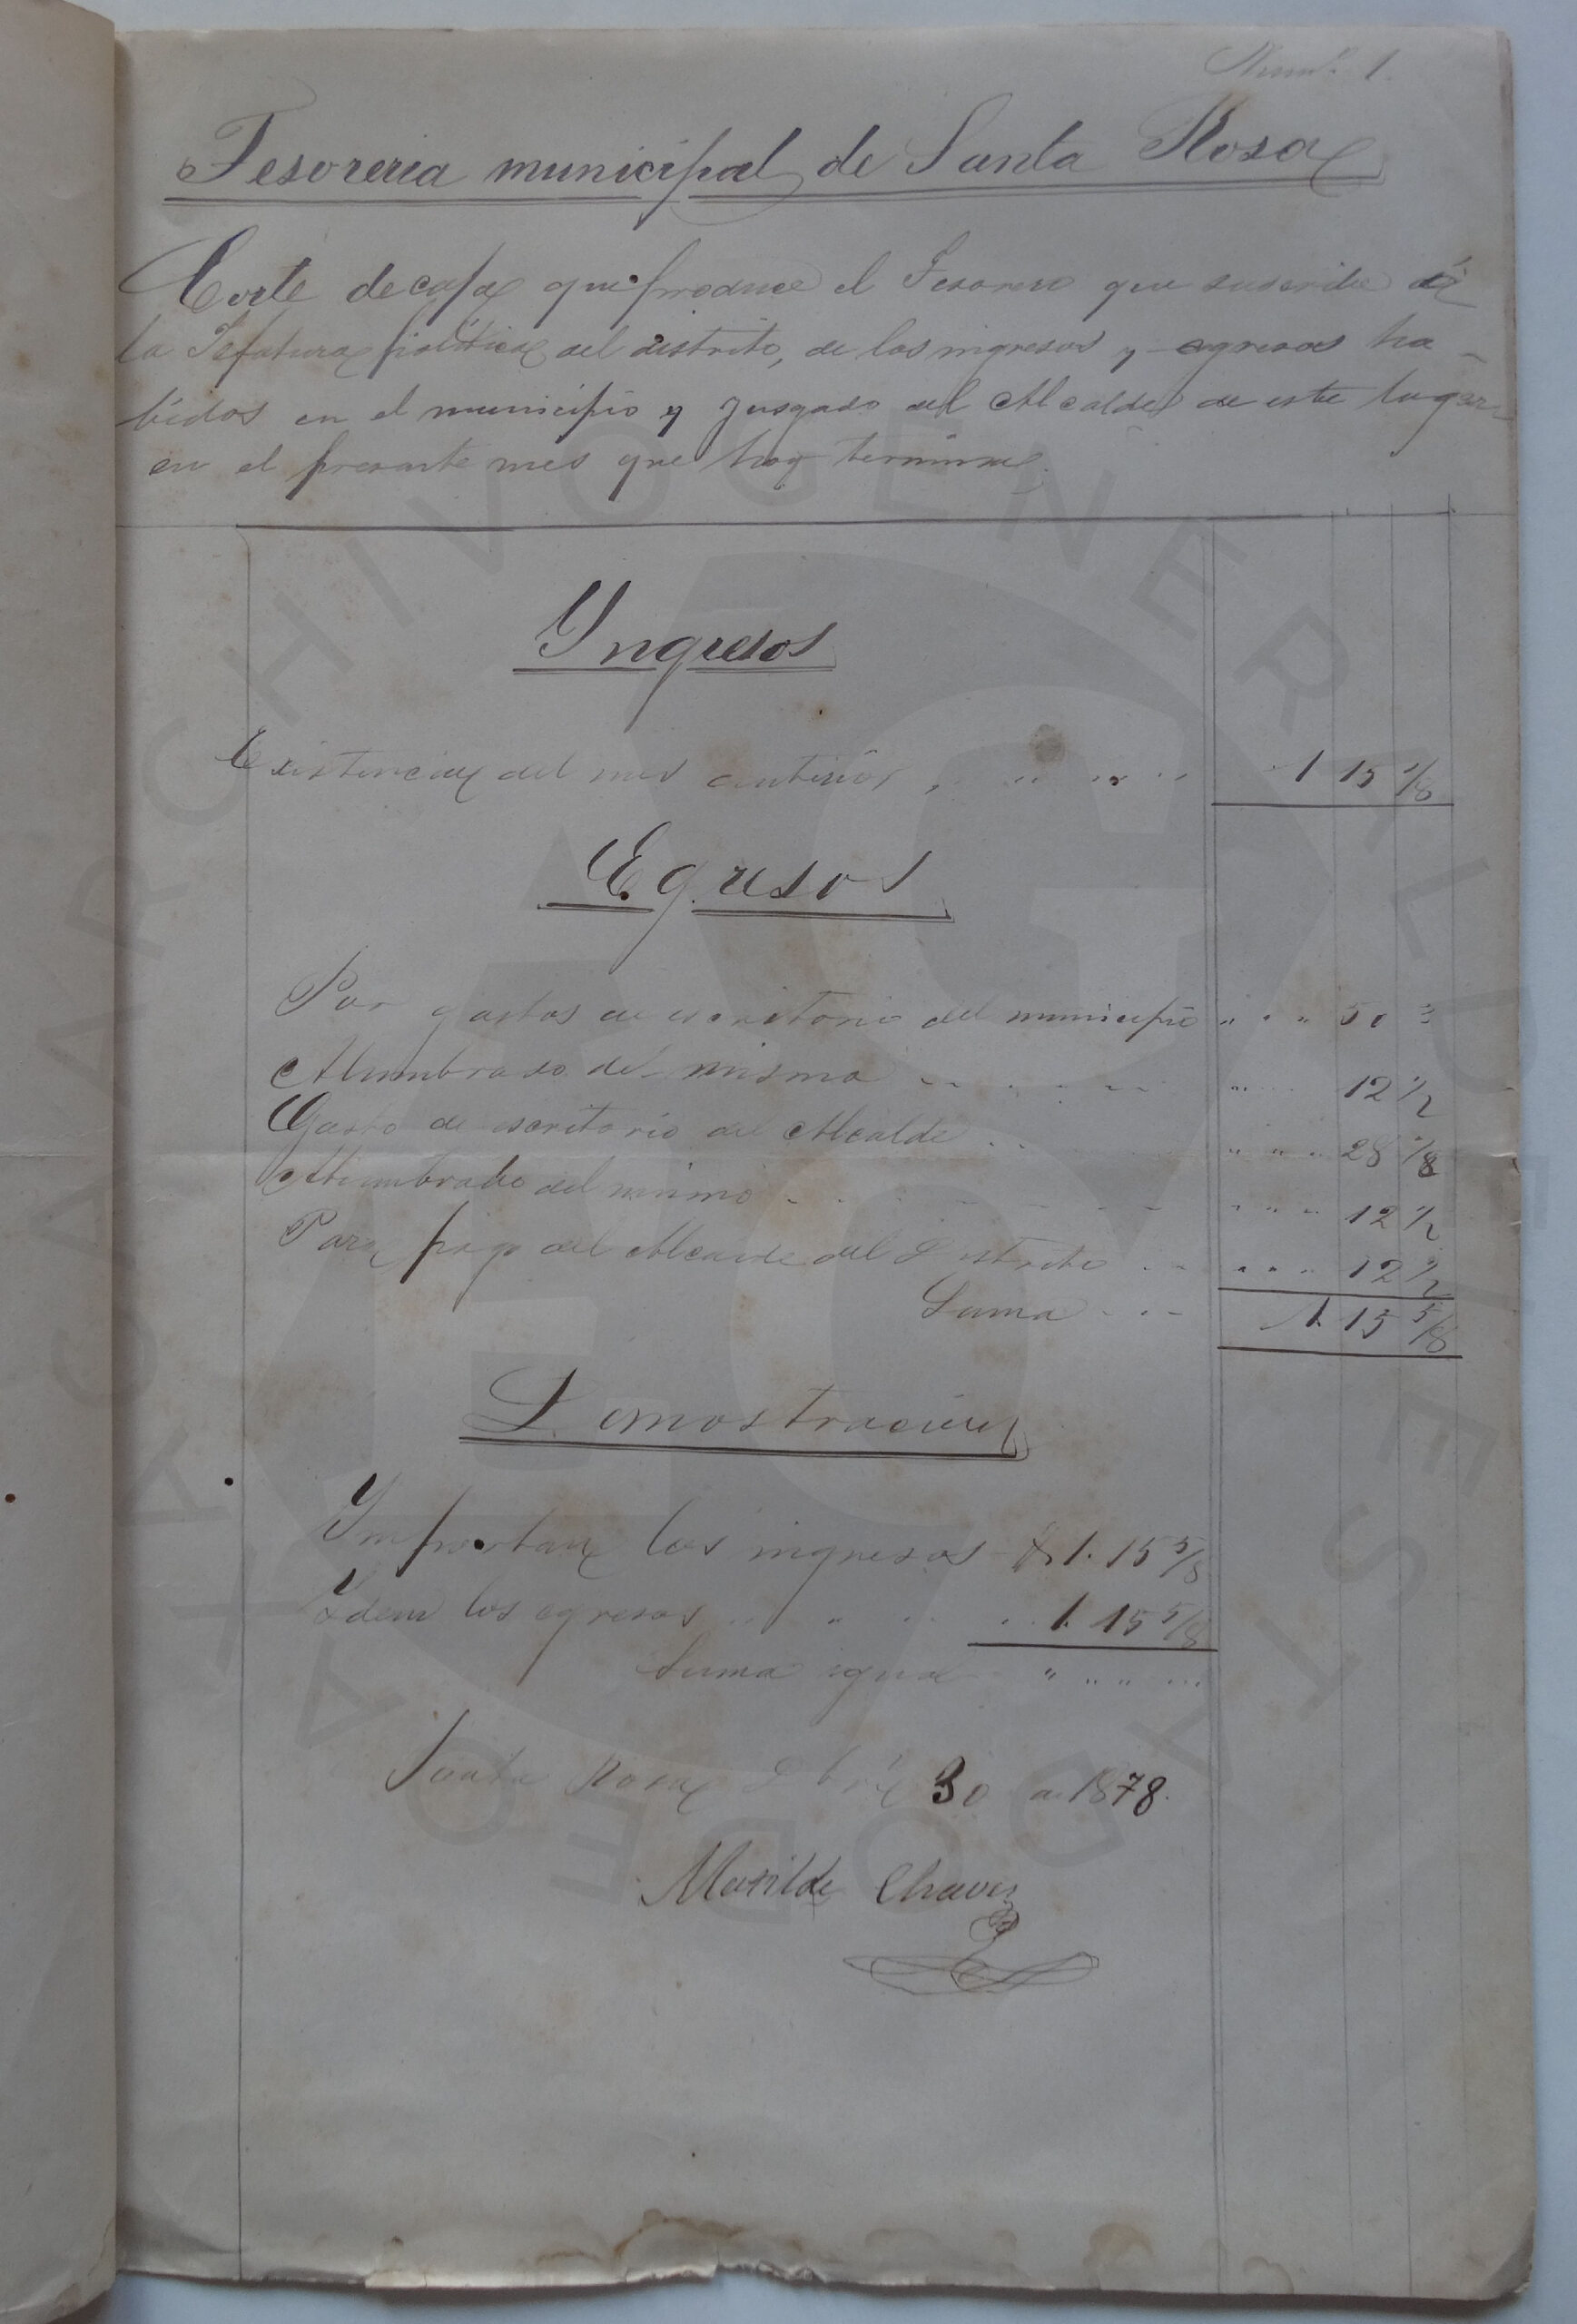 Num.º 1.
Tesoreria municipal de Santa Rosa
Corte de caja que produce el Tesorero que suscribe á
la Jefatura política del distrito, de los ingresos y egresos ha-
bidos en el municipio y Jusgado del Alcalde de este lugar
en el presente mes que hoy termina.
Ingresos
Existencia del mes anterior , " " " " 1 15 5/8
Egresos
Por gastos de escritorio del municipio " " " 50 "
Alumbrado del mismo " " " 12 1/2
Gasto de escritorio del Alcalde " " " 28 1/8
Alumbrado del mismo " " " 12 1/2
Para pago del Alcaide del Distrito " " " 12 1/2
Suma 1. 15 5/8
Demostracion
Importan los ingresos $ 1. 15 5/8
Idem los egresos " " " 1. 15 5/8
Suma igual " " " "
Santa Rosa 30 de 1878.
Matilde Chavez
ARCHIVO GENERAL DEL ESTADO DE OAXACA
AGEO